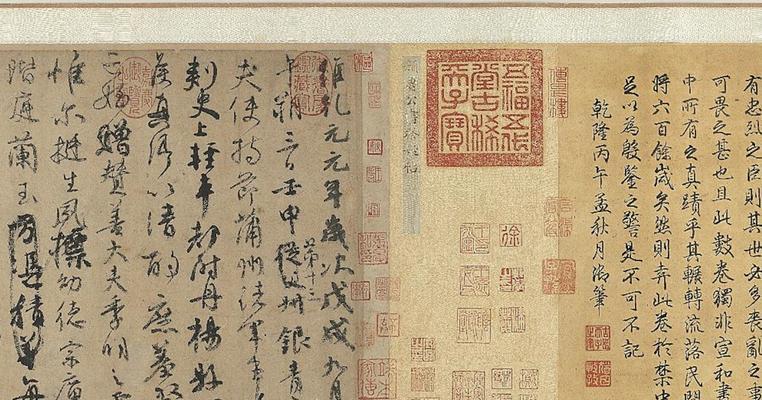 有忠烈之臣則其世必多喪亂之事
可畏之甚也且此數卷獨非宣和書
中所有之真蹟乎其輾轉流落民間
將六百餘歲矣然則弆此卷於禁中
足以為殷鑒之警是不可不記
乾隆丙午孟秋月御筆
五福五代堂古稀天子寶
顏魯公書祭姪帖
維乾元元年歲次戊戌九月
第十三
午朔三日壬申從父銀青
夫使持節蒲州諸軍事
刺史上輕車都尉丹楊縣
侯真卿以清酌庶羞祭
亡姪贈贊善大夫季明之
惟爾挺生夙標幼德宗廟
階庭蘭玉方憑積善每